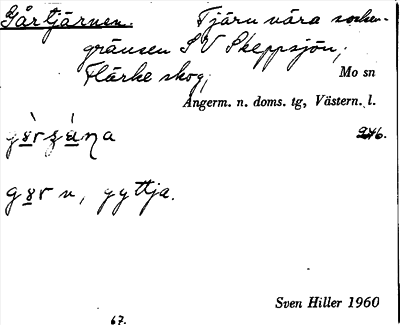 Gårtjärnen. Tjärn nära socken-
gränsen S V Skeppsjön,
Flärke skog,
Mo sn
Ångerm. n. doms. tg, Västern. l.
246.
n, gyttja.
Sven Hiller 1960
67.